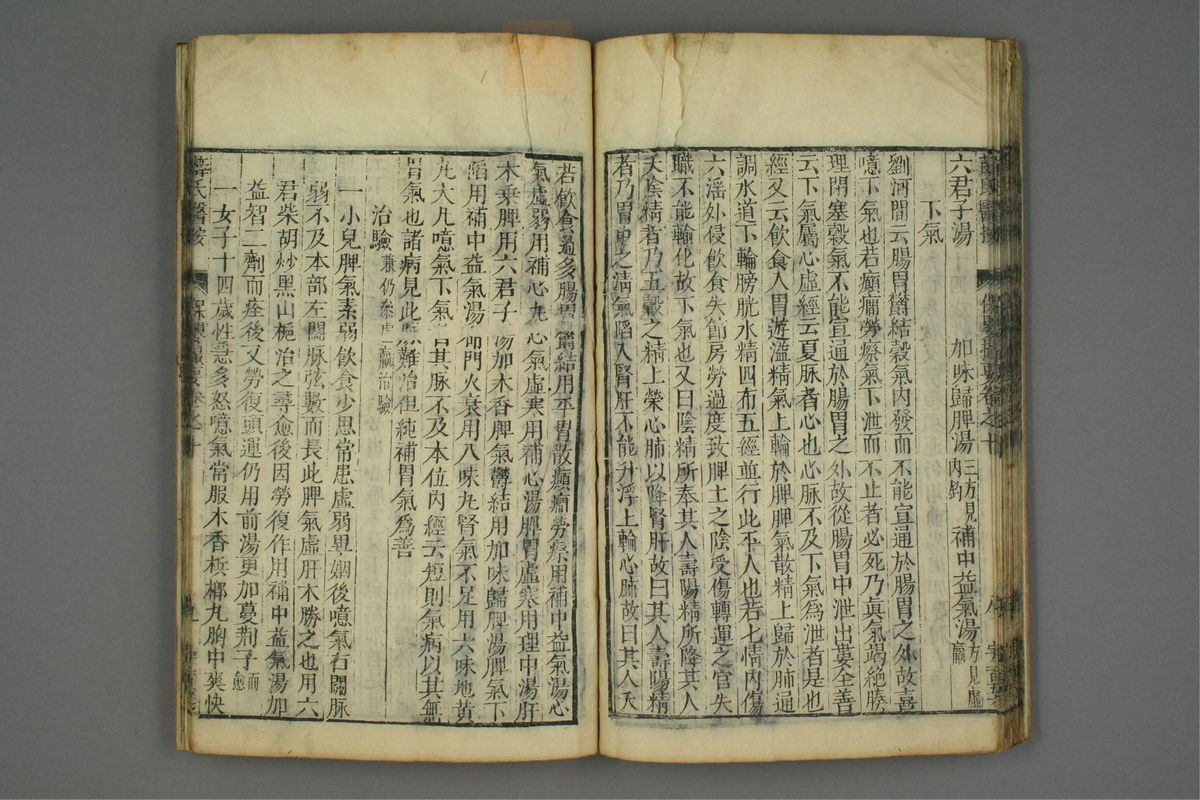 六君子湯 加味歸脾湯三方見內釣 補中益氣湯方見虛羸
下氣
劉河間云腸胃鬱結穀氣內發而不能宣通於腸胃之外故喜
噫下氣也若癲癇勞瘵氣下泄而不止者必死乃眞氣竭絕腠
理閉塞穀氣不能宣通於腸胃之外故從腸胃中泄出婁全善
云下氣屬心虛經云夏脉者心也心脉不及下氣爲泄者是也
經又云飲食入胃遊溢精氣上輸於脾脾氣散精上歸於肺通
調水道下輸膀胱水精四布五經並行此平人也若七情內傷
六淫外侵飲食失節房勞過度致脾土之陰受傷轉運之官失
職不能輸化故下氣也又曰陰精所奉其人壽陽精所降其人
夭陰精者乃五穀之精上榮心肺以降腎肝故曰其人壽陽精
者乃胃中之清氣陷入腎肝不能升浮上輸心肺故曰其人夭
若飲食過多腸胃鬱結用平胃散癲癇勞瘵用補中益氣湯心
氣虛弱用補心丸心氣虛寒用補心湯脾胃虛寒用理中湯肝
木乘脾用六君子湯加木香脾氣鬱結用加味歸脾湯脾氣下
陷用補中益氣湯命門火衰用八味丸腎氣不足用六味地黃
丸大凡噫氣下氣者其脉不及本位內經云短則氣病以其無
胃氣也諸病見此脉難治但純補胃氣爲善
治驗兼仍參虛羸治驗
一小兒脾氣素弱飲食少思常患虛弱畢姻後噫氣右關脉
弱不及本部左關脉弦數而長此脾氣虛肝木勝之也用六
君柴胡炒黑山梔治之尋愈後因勞復作用補中益氣湯加
益智二劑而痊後又勞復頭運仍用前湯更加蔓荆子而愈
一女子十四歲性急多怒噫氣常服木香檳榔丸胸中爽快
薛氏醫按